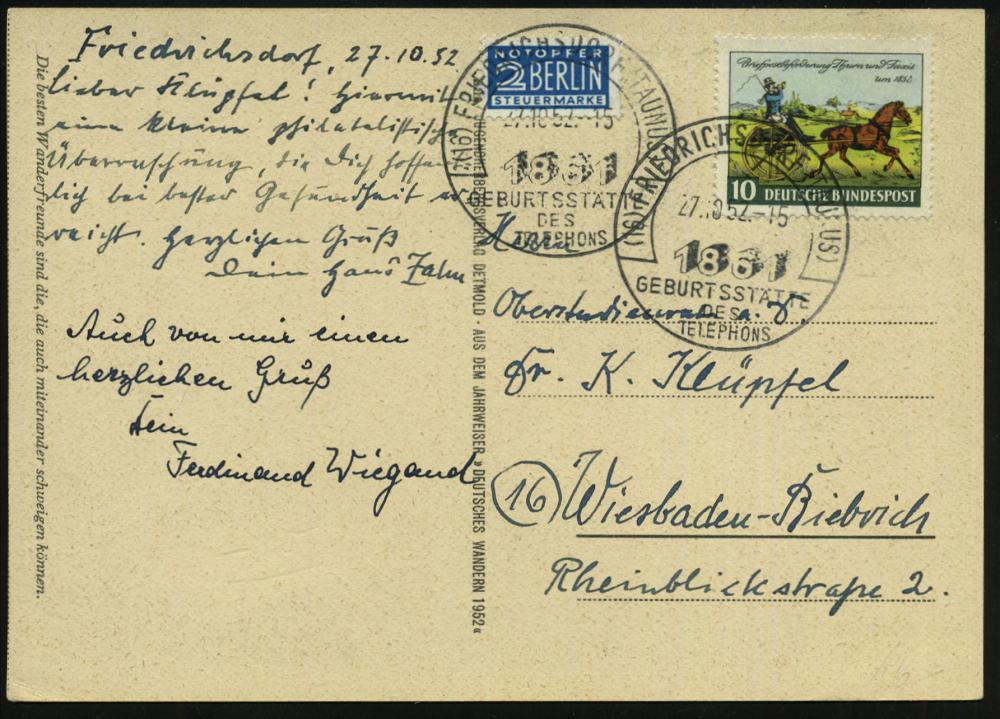 Friedrichsdorf, 27.10.52
Lieber Klüpfel! Hiermit
eine kleine philatelistische
Überraschung, die Dich hoffent-
lich bei bester Gesundheit er-
reicht. Herzlichen Gruß
Dein Hans Zahn
Auch von mir einen
herzlichen Gruß
Dein
Ferdinand Wiegand
Die besten Wanderfreunde sind die, die auch miteinander schweigen können.
DETMOLD · AUS DEM JAHRWEISER »DEUTSCHES WANDERN 1952«
NOTOPFER
2 BERLIN
STEUERMARKE
(16) FRIEDRICHSDORF (TAUNUS)
27.10.52.-15
1861
GEBURTSSTÄTTE
DES
TELEPHONS
Briefpostbeförderung Thurn und Taxis
um 1852
10 DEUTSCHE BUNDESPOST
(16) FRIEDRICHSDORF (TAUNUS)
27.10.52.-15
1861
GEBURTSSTÄTTE
DES
TELEPHONS
Herrn
Oberstudienrat a. D.
Dr. K. Klüpfel
(16) Wiesbaden-Biebrich
Rheinblickstraße 2.